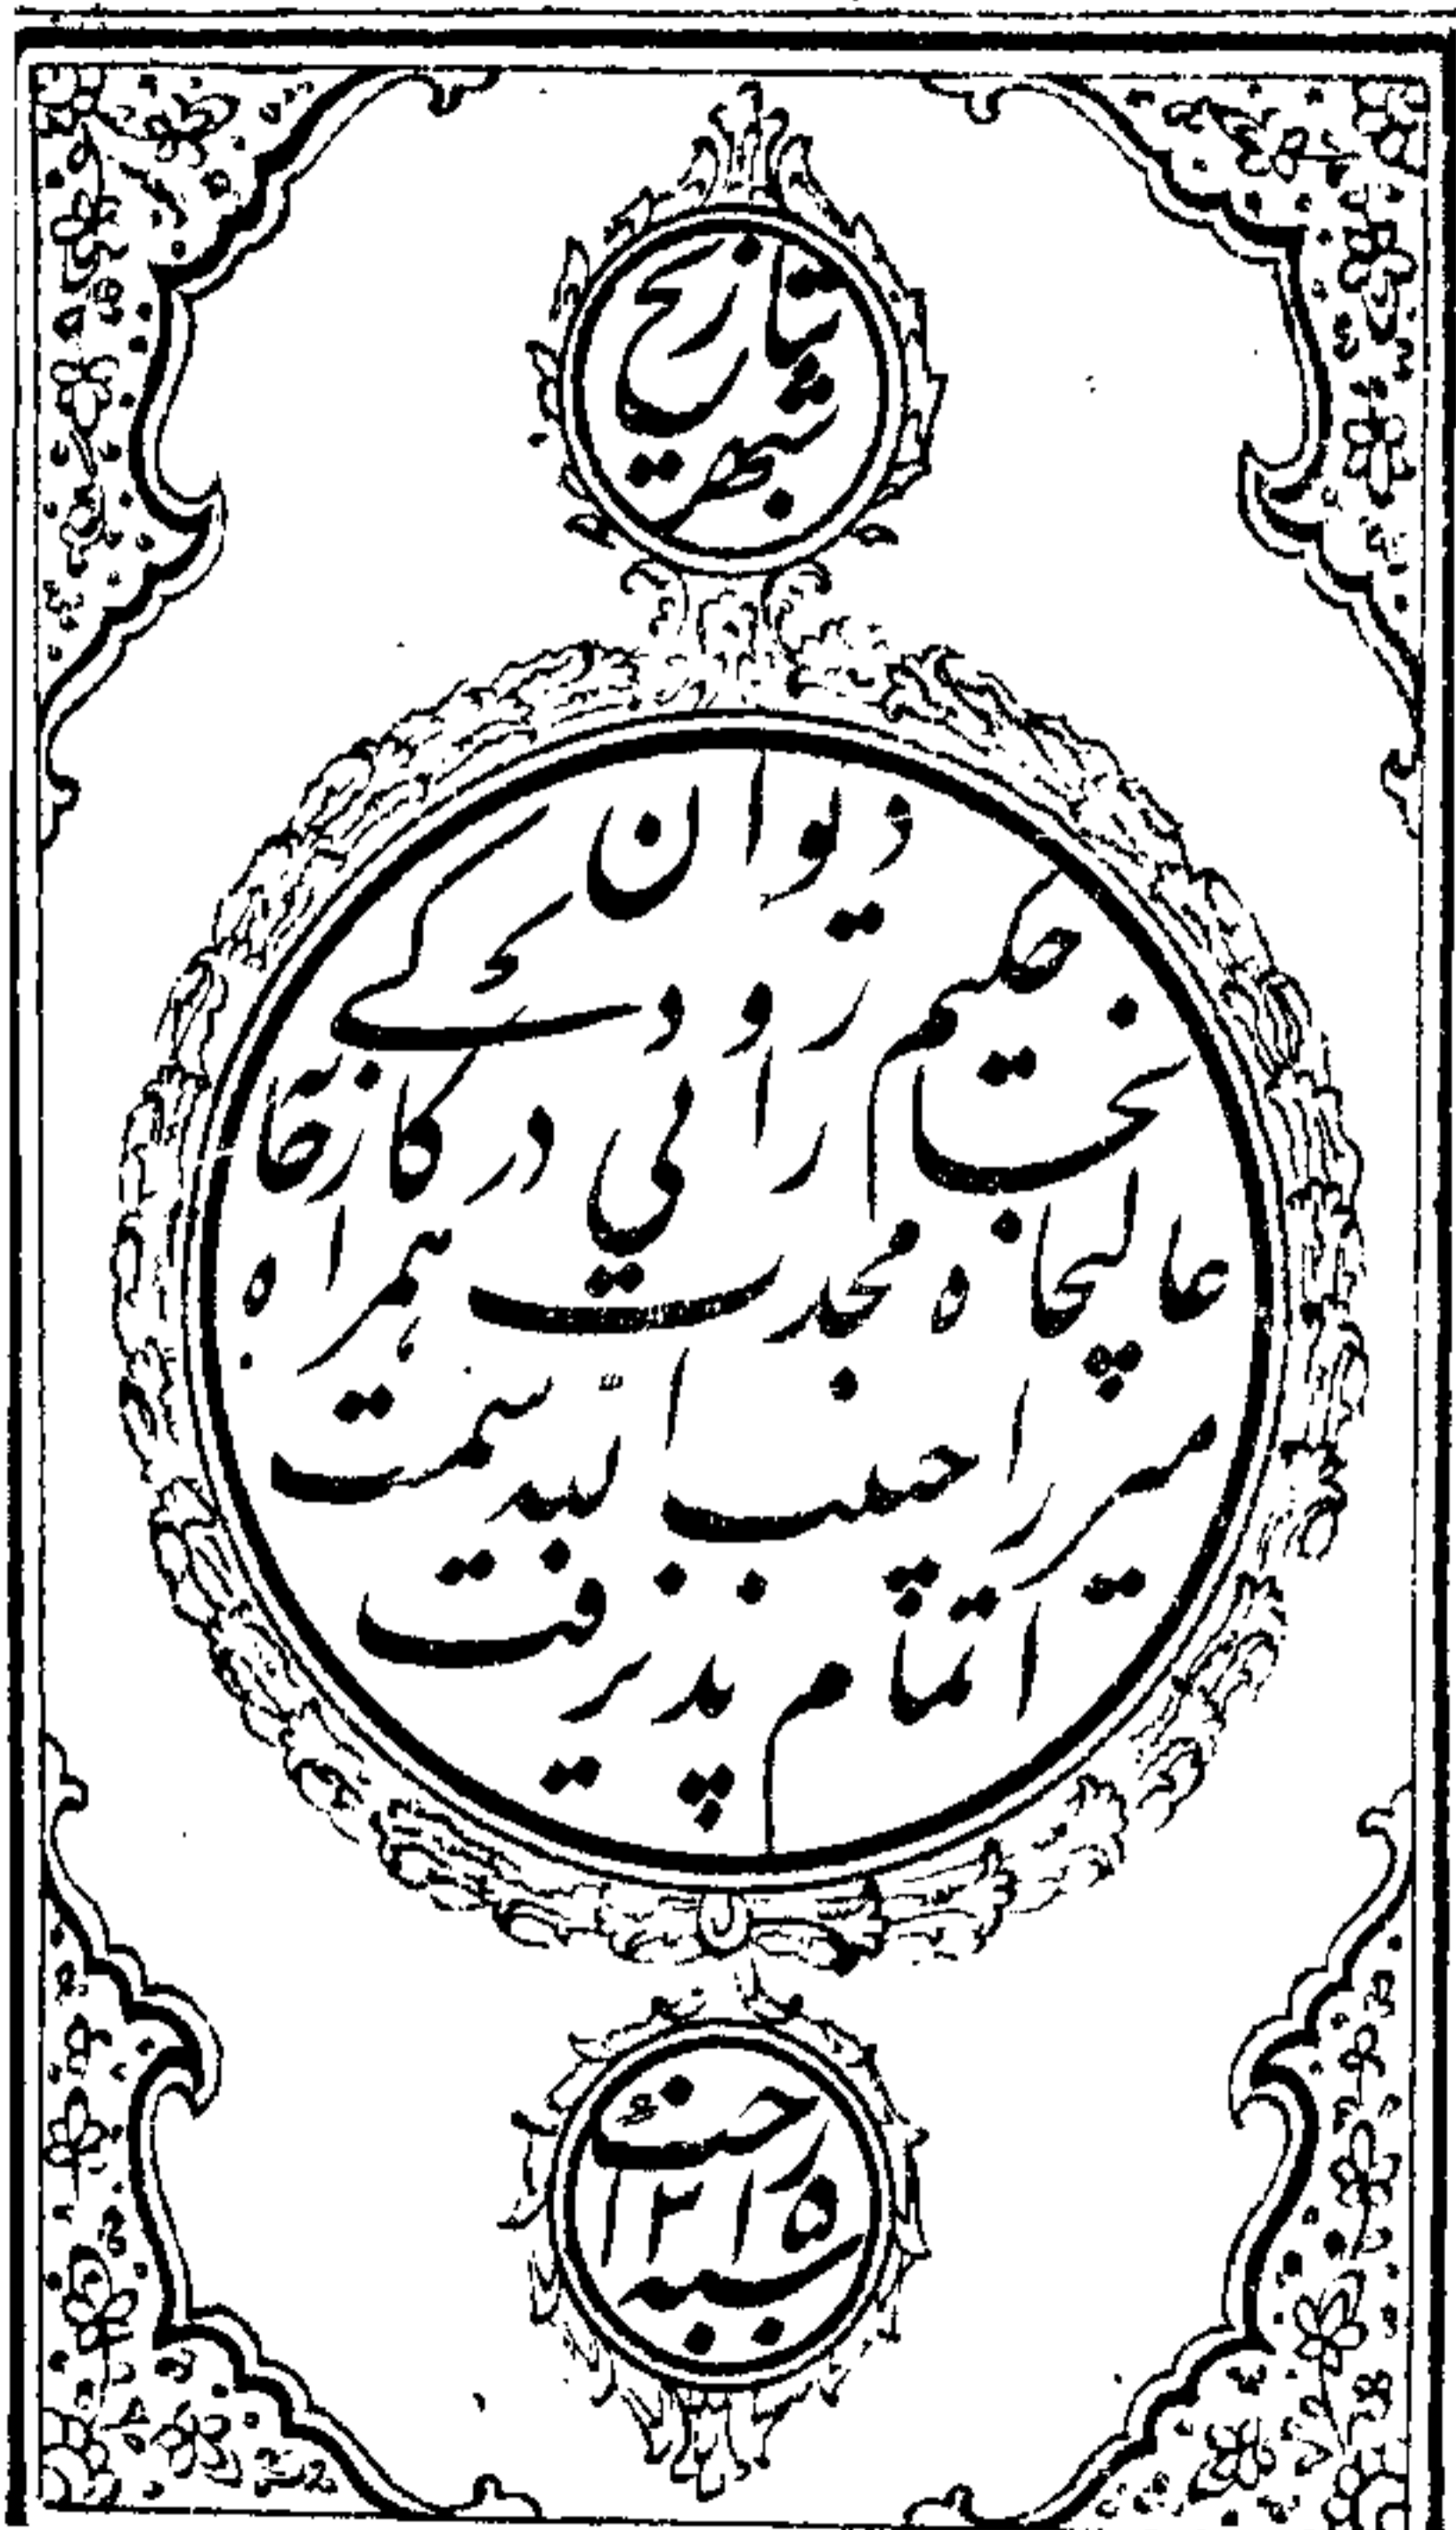 بتاریخ
شهر
دیوان
حکیم رودکی
بخارائی در کارخانه
عالیجاه مجدت همراه
میرزا حبیب الله سمت
اتمام پذیرفت
۱۳۱۵
سنه